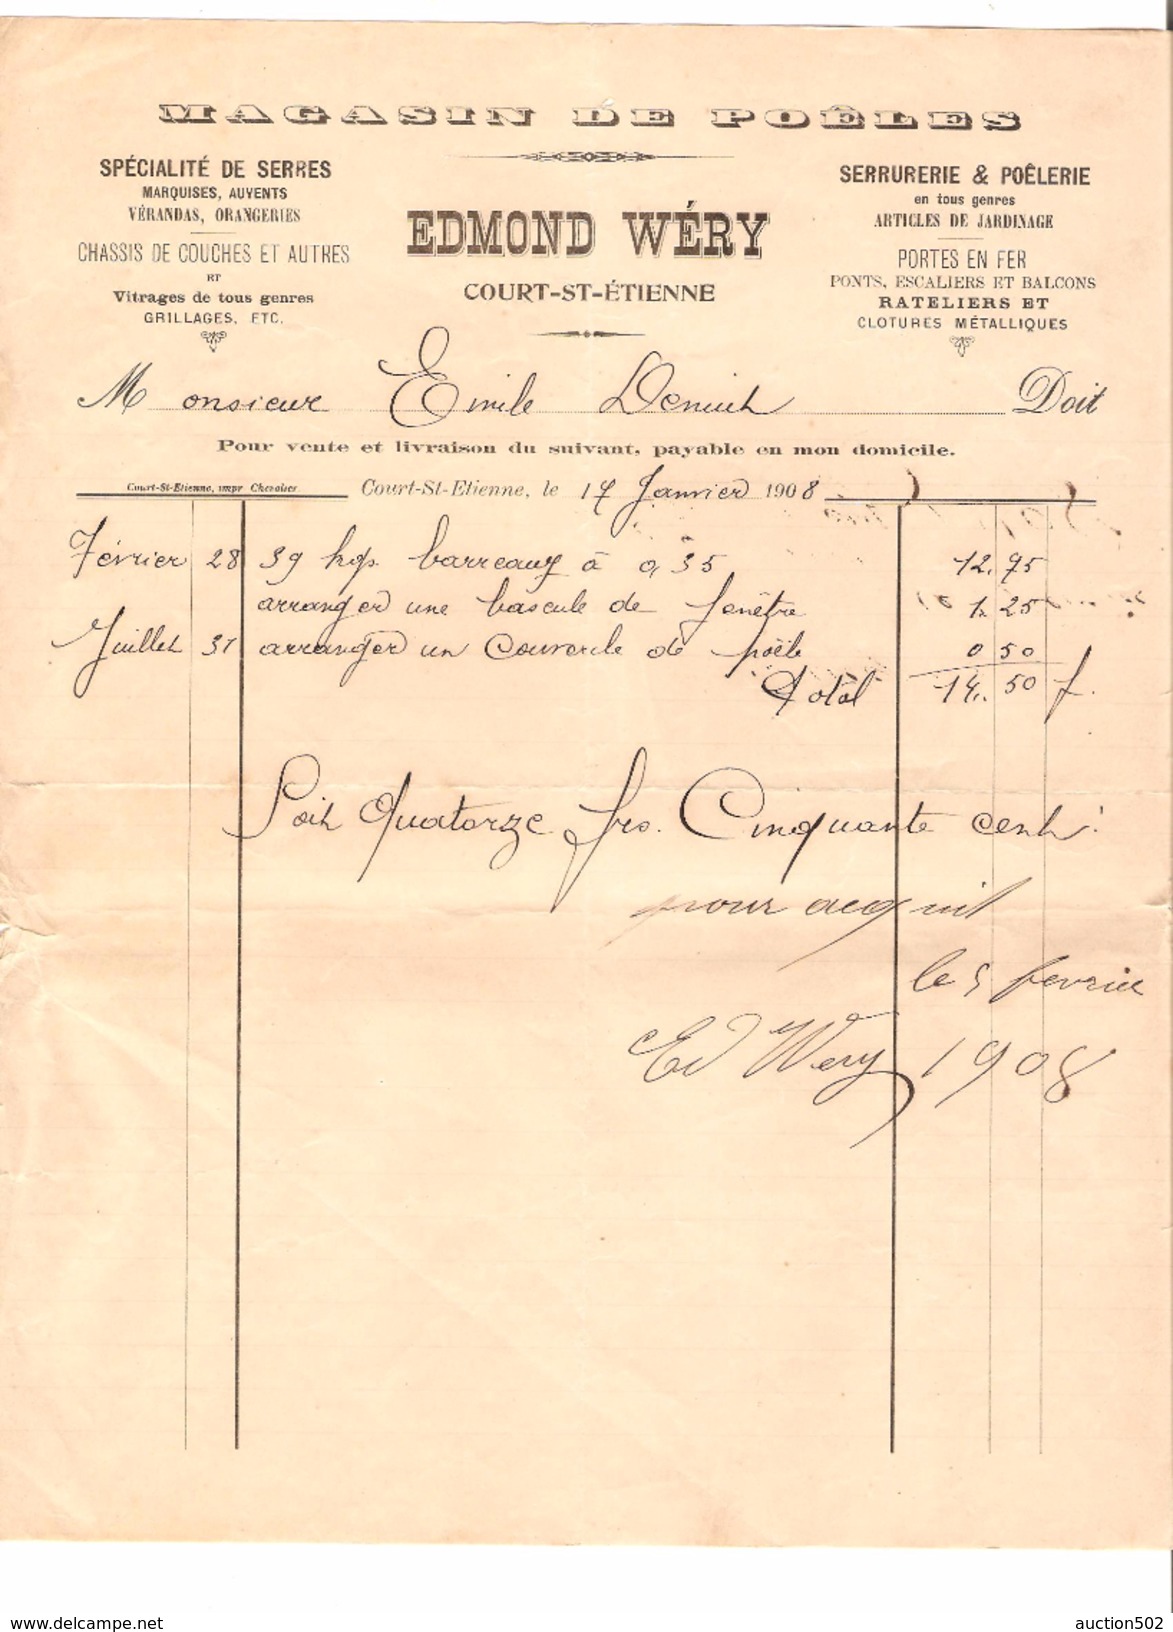 MAGASIN DE POÊLES
SPÉCIALITÉ DE SERRES
MARQUISES, AUVENTS
VÉRANDAS, ORANGERIES
CHASSIS DE COUCHES ET AUTRES
ET
Vitrages de tous genres
GRILLAGES, ETC.
EDMOND WÉRY
COURT-ST-ÉTIENNE
SERRURERIE & POÊLERIE
en tous genres
ARTICLES DE JARDINAGE
PORTES EN FER
PONTS, ESCALIERS ET BALCONS
RATELIERS ET
CLOTURES MÉTALLIQUES
Monsieur Emile Doit
Pour vente et livraison du suivant, payable en mon domicile.
Court-St-Etienne, impr Chevalier
Court-St-Etienne, le 17 Janvier 1908
Février 28 39 kgs barreaux à 0,35 12.95
arranger une bascule de fenêtre 1.25
Juillet 31 arranger un Couvercle de poële 0 50
Total 14.50 f.
Soit Quatorze frs. Cinquante cent.
pour acquit
le 5 fevrier
Ed Wery 1908
auction502